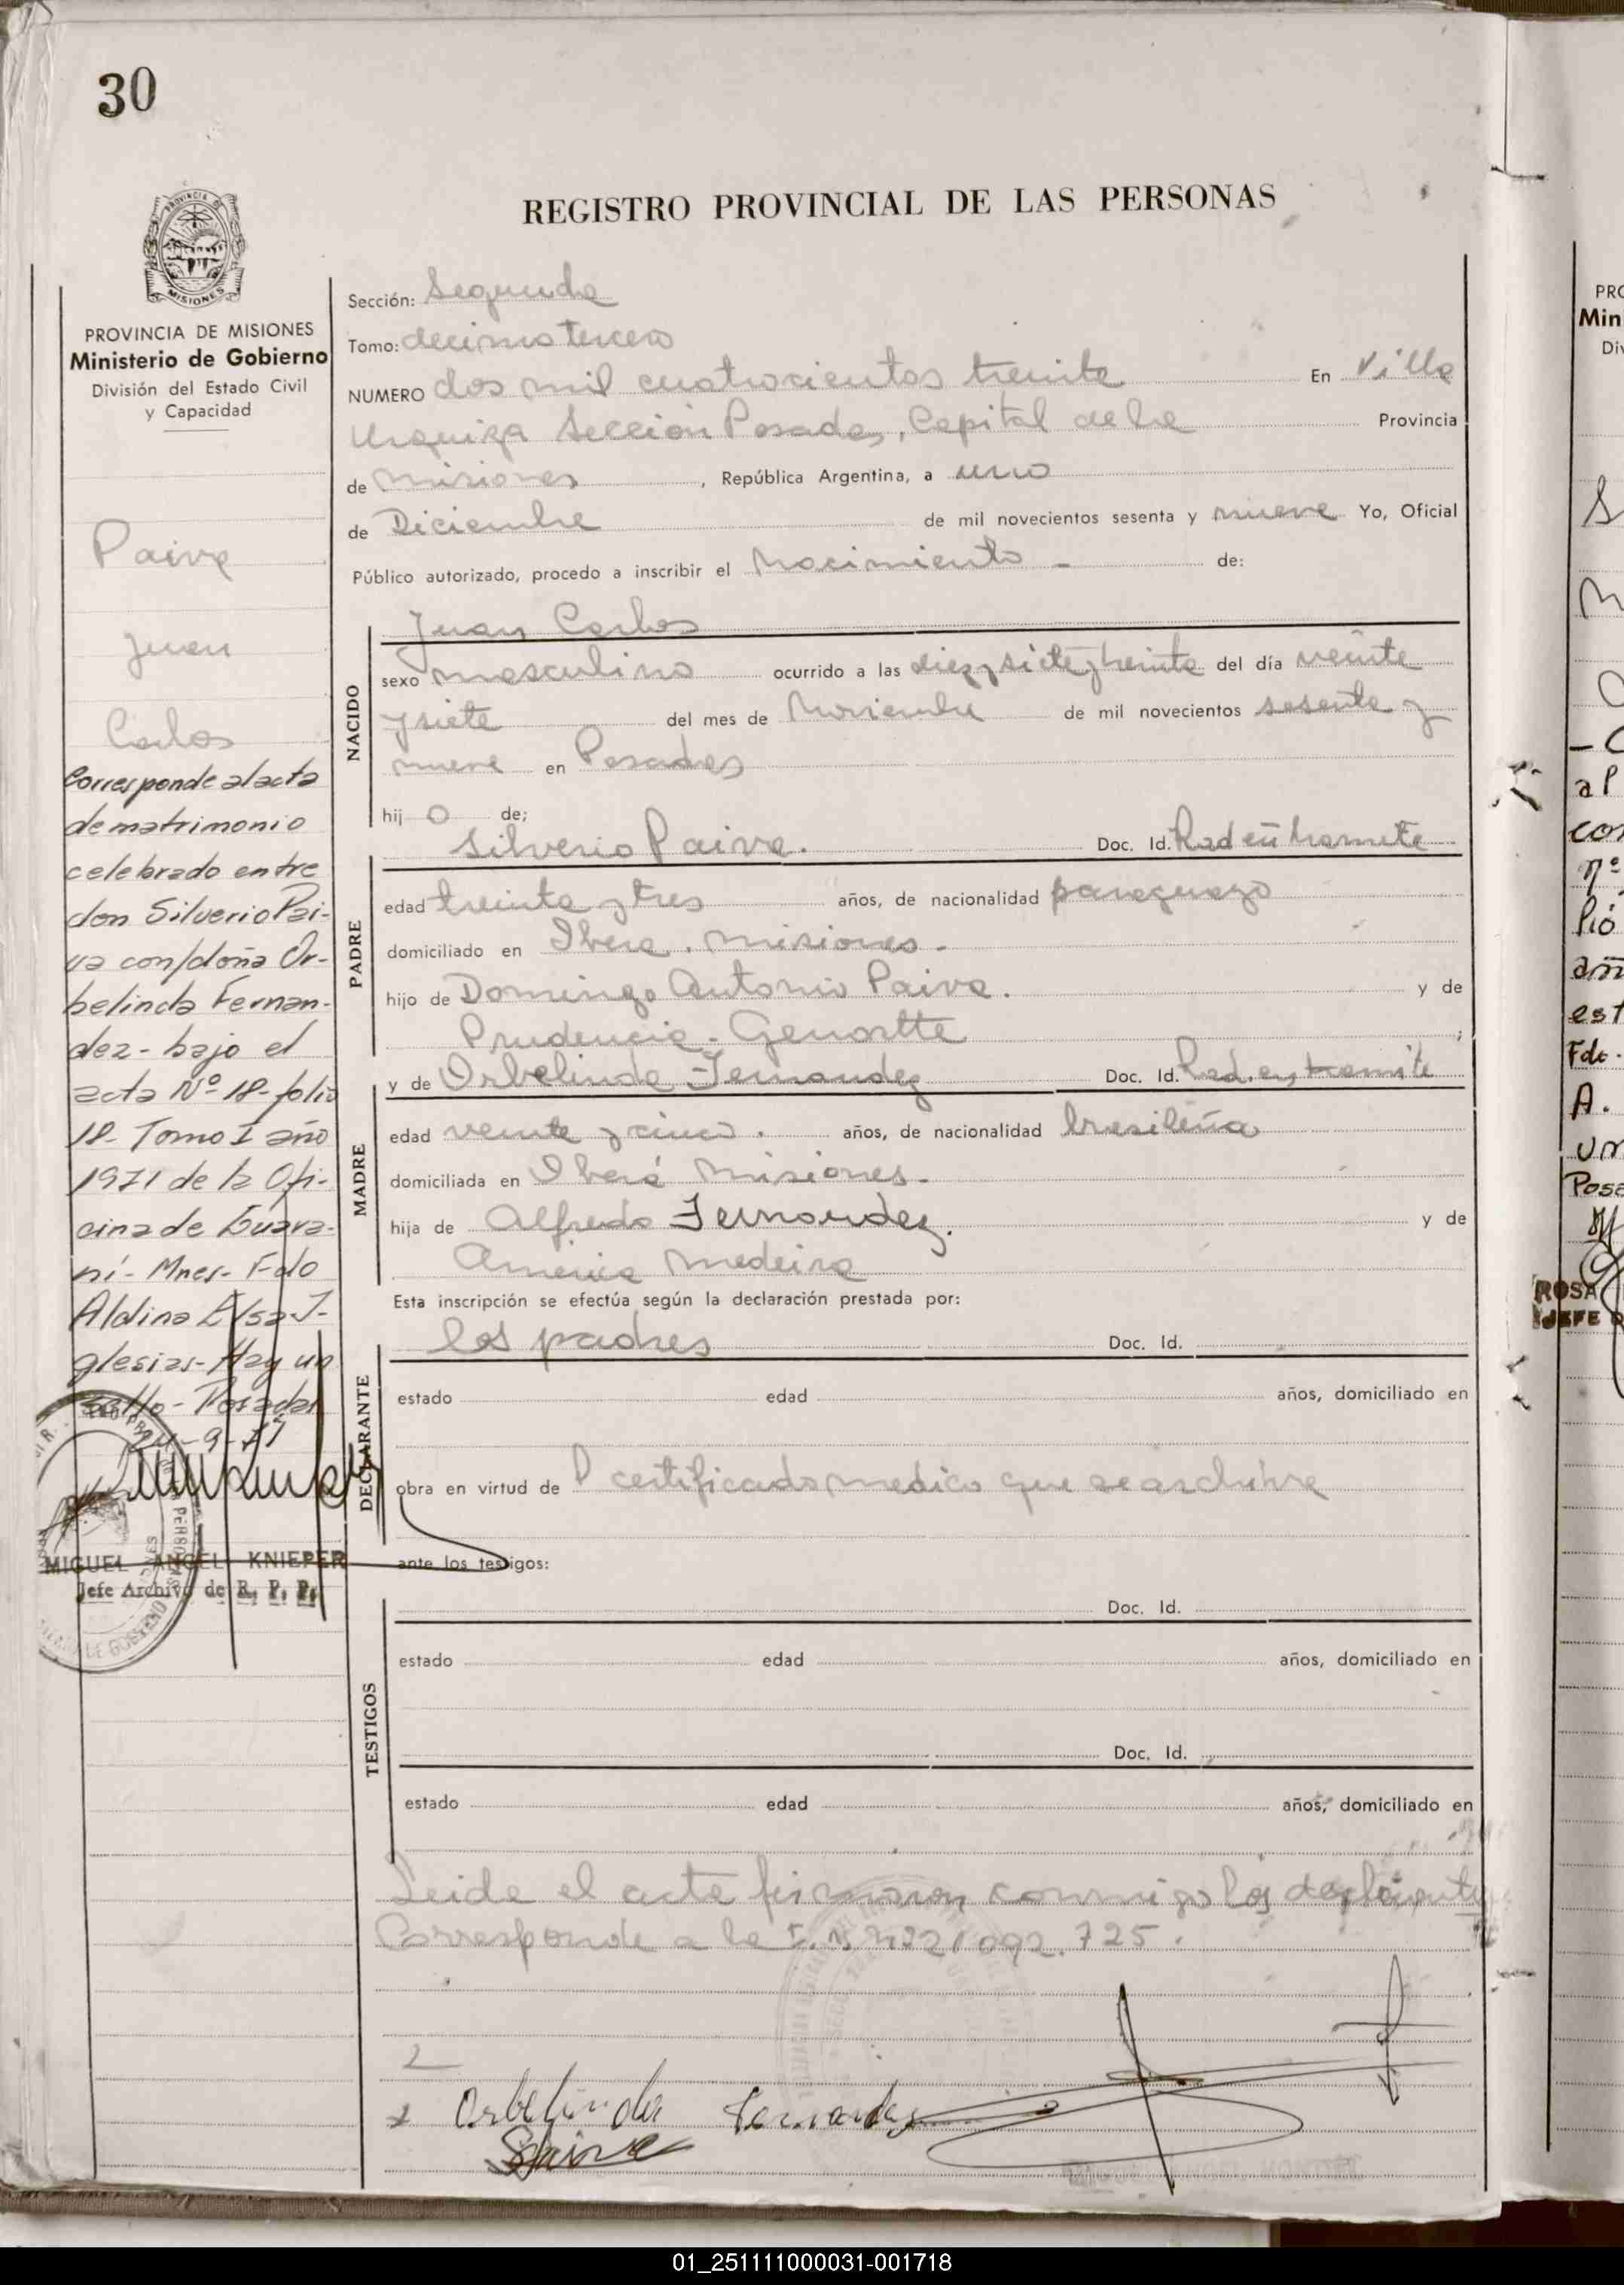 30
REGISTRO PROVINCIAL DE LAS PERSONAS
PROVINCIA DE MISIONES
MISIONES
PROVINCIA DE MISIONES
Ministerio de Gobierno
División del Estado Civil
y Capacidad
Paiva
Juan
Carlos
Corresponde al acta
de matrimonio
celebrado entre
don Silverio Pai-
va con/doña Or-
belinda Fernan-
dez - bajo el
acta Nº 18 - folio
18 - Tomo I año
1971 de la Ofi-
cina de Guara-
ní - Mnes - Fdo
Aldina Elsa I-
glesias - Hay un
sello - Posadas
MIGUEL ANGEL KNIEPER
Jefe Archivo de R. P. P.
Sección: Segunda
Tomo: decimo tercero
NUMERO dos mil cuatrocientos treinta En Villa
Urquiza Sección Posadas, Capital de la Provincia
de Misiones, República Argentina, a uno
de Diciembre de mil novecientos sesenta y nueve Yo, Oficial
Público autorizado, procedo a inscribir el Nacimiento - de:
Juan Carlos
NACIDO
sexo masculino ocurrido a las diez y siete y treinta del día veinte
y siete del mes de Noviembre de mil novecientos sesenta y
nueve en Posadas
hij o de;
Silverio Paiva. Doc. Id. Rad en tramite
PADRE
edad treinta y tres años, de nacionalidad paraguayo
domiciliado en Ibera. Misiones -
hijo de Domingo Antonio Paiva. y de
Prudencia - ;
y de Orbelinda Fernandez Doc. Id. Rad. en tramite
MADRE
edad veinte y cinco. años, de nacionalidad brasileña
domiciliada en Iberá Misiones -
hija de Alfredo Fernandez. y de
America Medeira
Esta inscripción se efectúa según la declaración prestada por:
los padres Doc. Id.
DECLARANTE
estado edad años, domiciliado en
obra en virtud de certificado medico que se archiva
ante los testigos:
Doc. Id.
TESTIGOS
estado edad años, domiciliado en
Doc. Id.
estado edad años, domiciliado en
Leida el acta firmaron conmigo los
Corresponde a la 092.725.
Orbelinda Fernandez
SPaiva
PRO
Min
Div
ROSA
JEFE
01_251111000031-001718